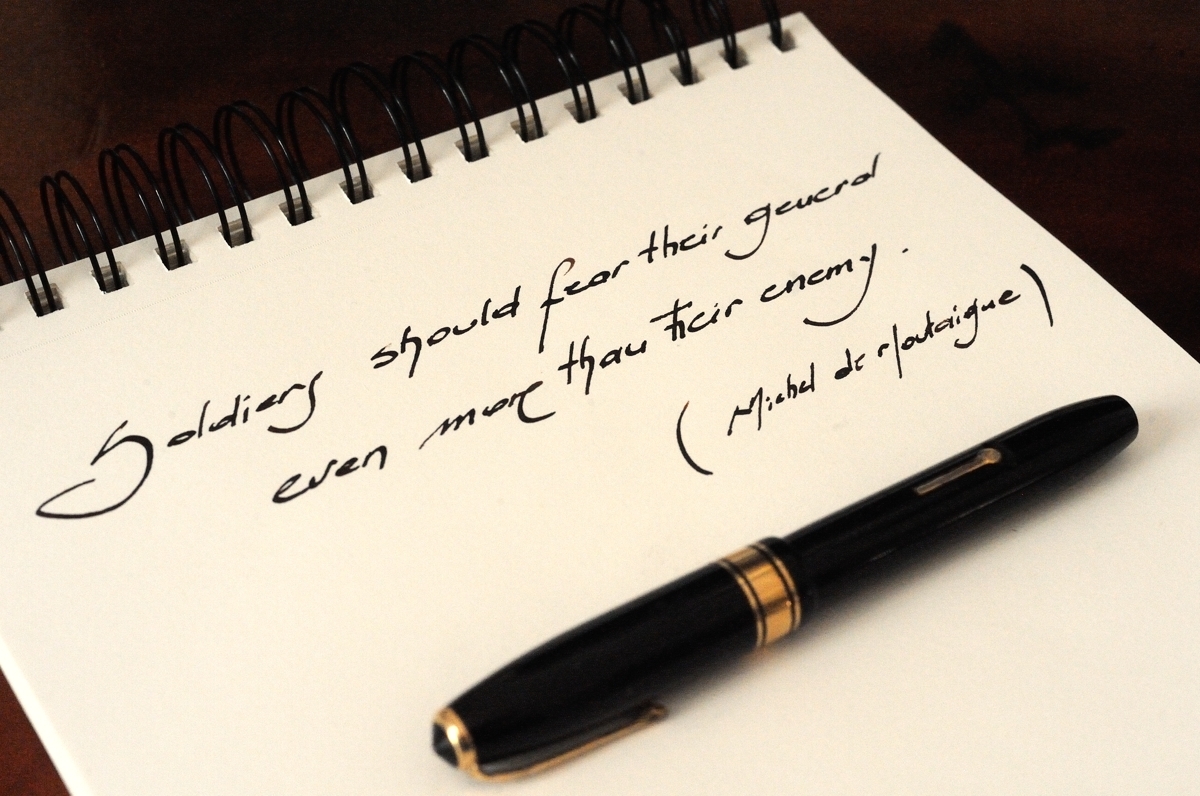 Soldiers should fear their general
even more than their enemy.
(Michel de Montaigne)